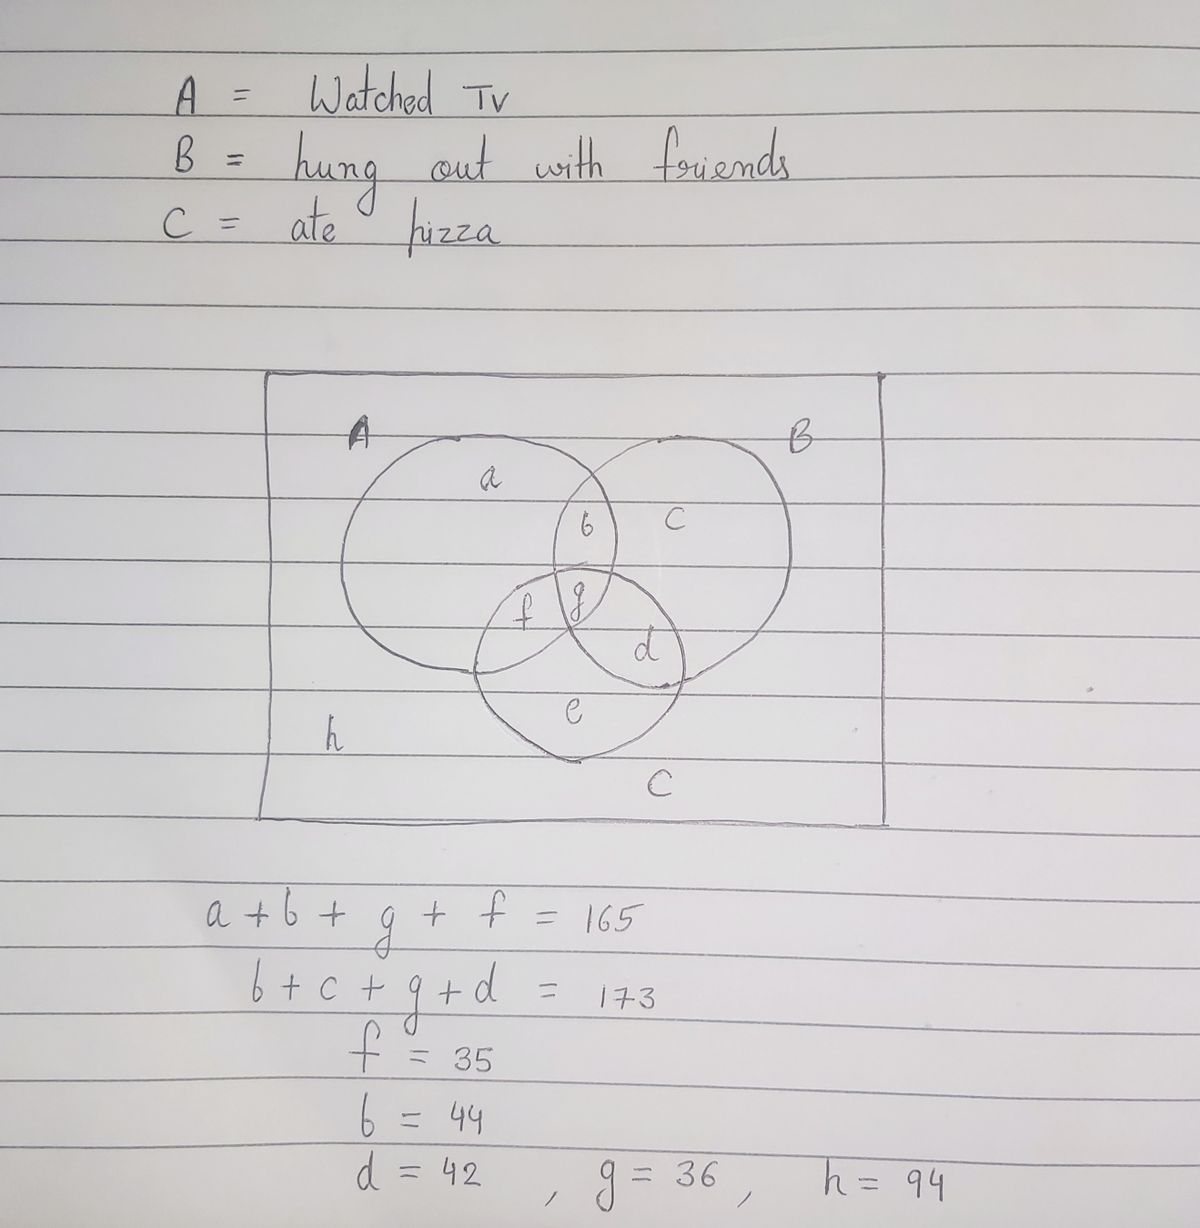 A = Watched TV
B = hung out with friends
C = ate pizza
A
B
a
b
c
f
g
d
e
h
C
a + b + g + f = 165
b + c + g + d = 173
f = 35
b = 44
d = 42 , g = 36 , h = 94